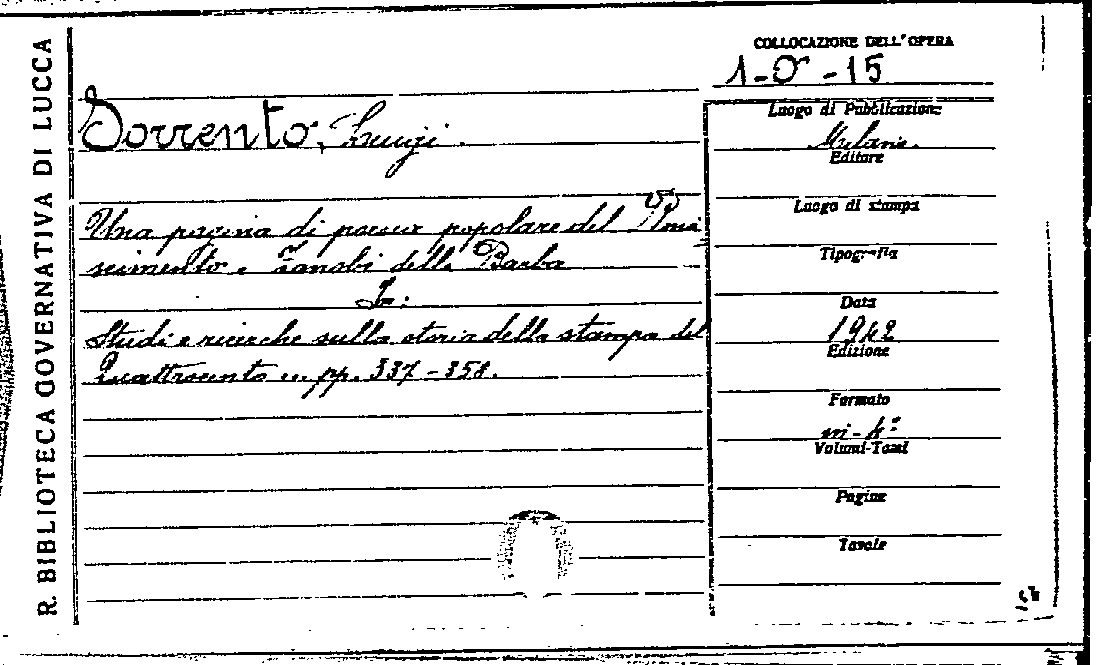 R. BIBLIOTECA GOVERNATIVA DI LUCCA
COLLOCAZIONE DELL'OPERA
1-O-15
Sorrento, Luigi.
Una pagina di poesia popolare del Rina
scimento e Zanobi della Barba
In:
Studi e ricerche sulla storia della stampa del
Quattrocento ... pp. 337-358.
Luogo di Pubblicazione
Milano.
Editore
Luogo di stampa
Tipografia
Data
1942
Edizione
Formato
in-4°
Volumi-Tomi
Pagine
Tavole